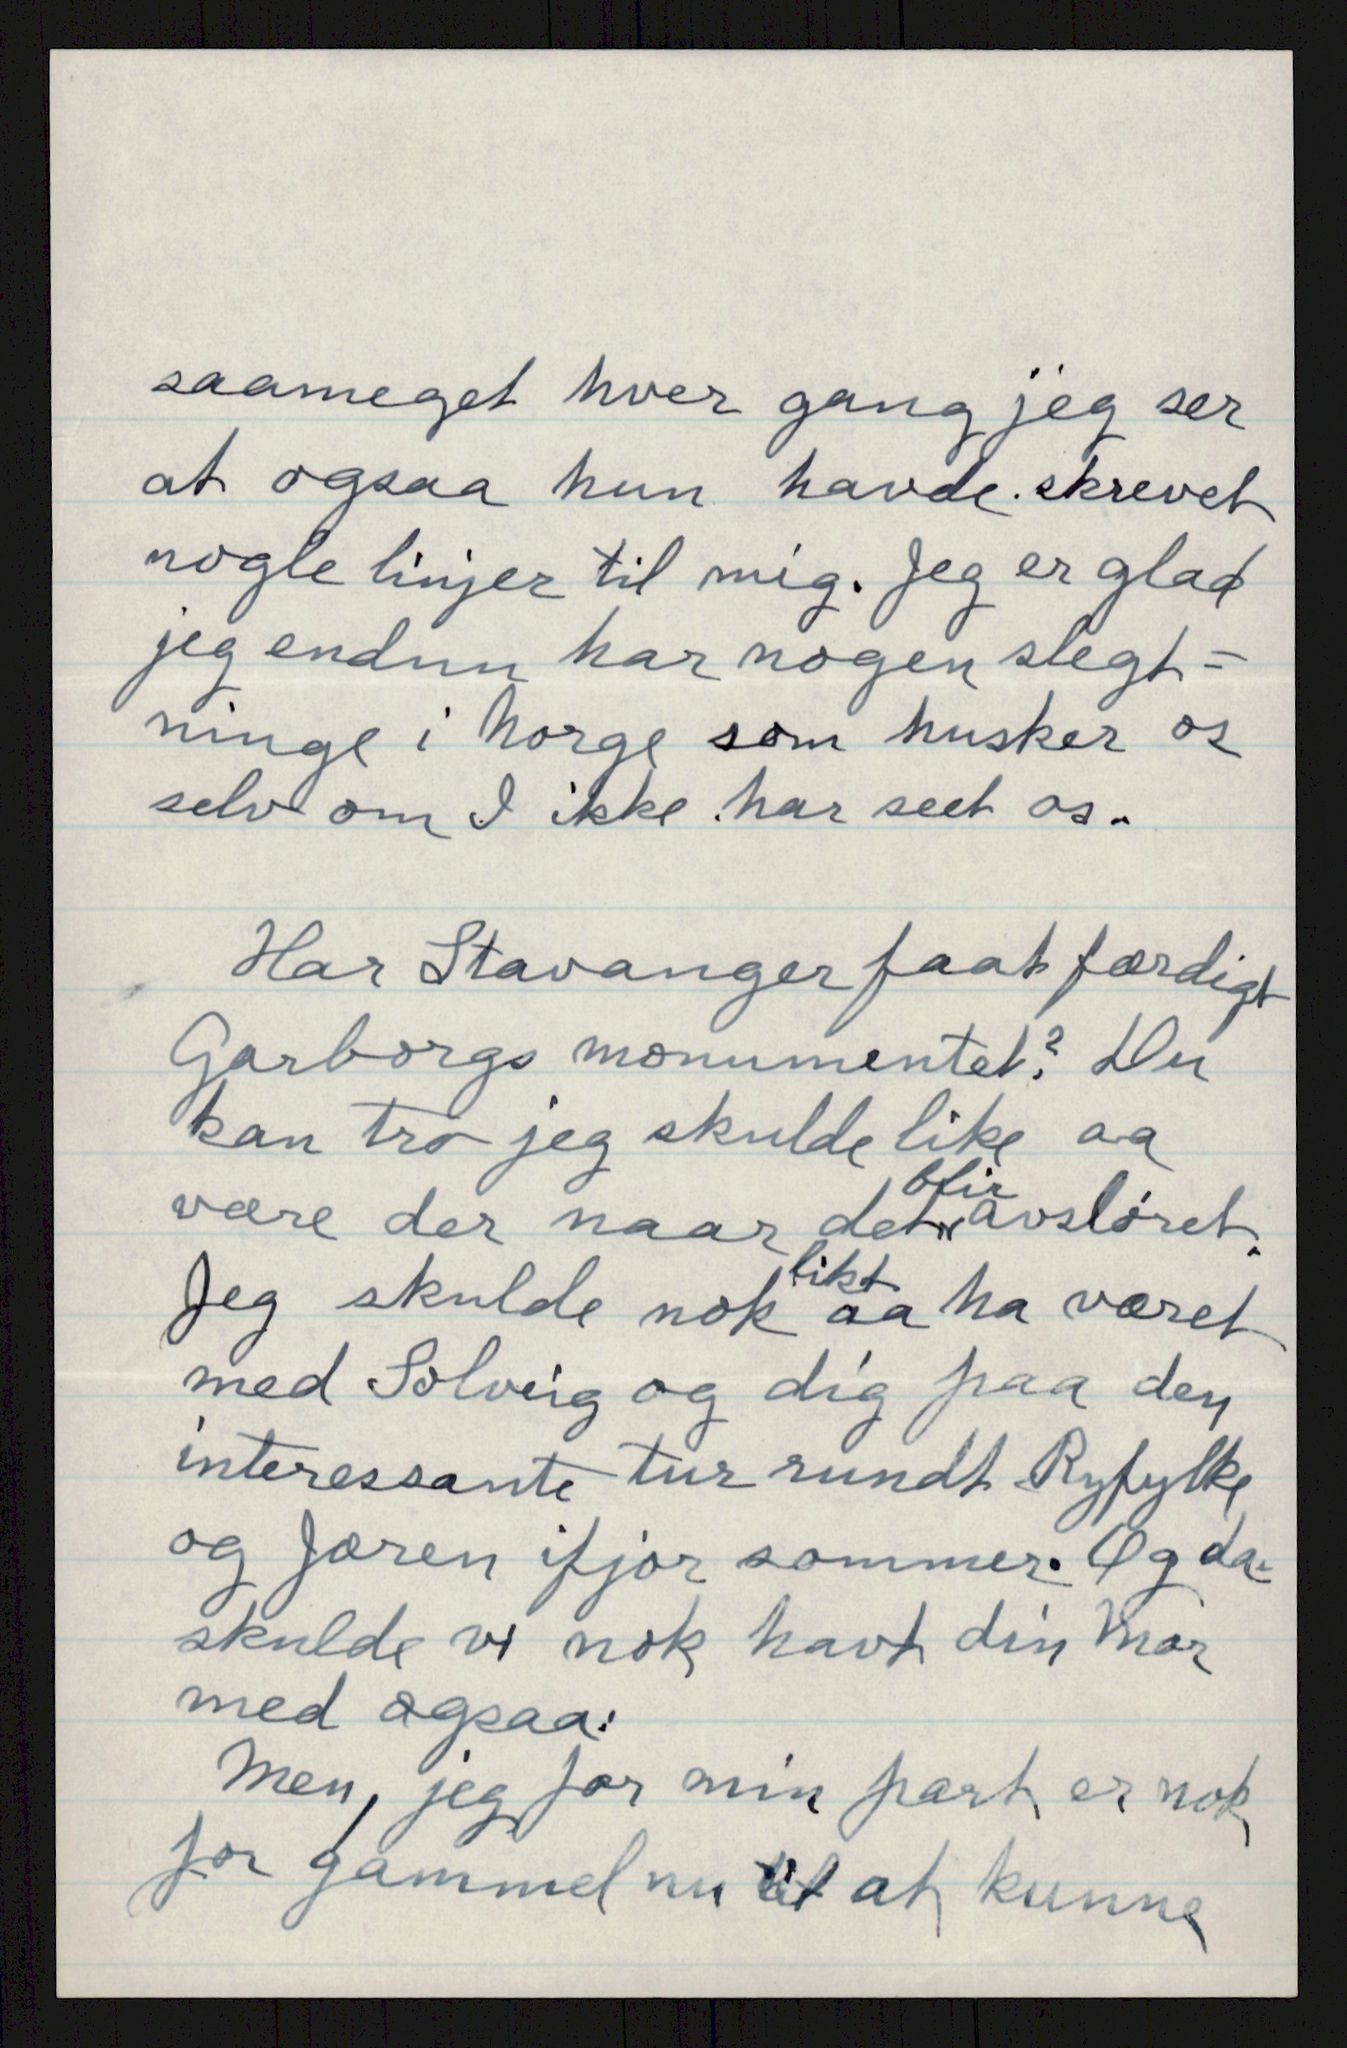 saameget hver gang jeg ser
at ogsaa hun havde skrevet
nogle linjer til mig. Jeg er glad
jeg endnu har nogen slegt=
ninge i Norge som husker os
selv om I ikke har seet os.
Har Stavanger faat færdigt
Garborgs monumentet? Du
kan tro jeg skulde like aa
være der naar det blir avsløret.
Jeg skulde nok likt aa ha været
med Solveig og dig paa den
interessante tur rundt Ryfylke
og Jæren ifjor sommer. Og da
skulde vi nok havt din Mor
med ogsaa.
Men, jeg for min part er nok
for gammel nu til at kunne